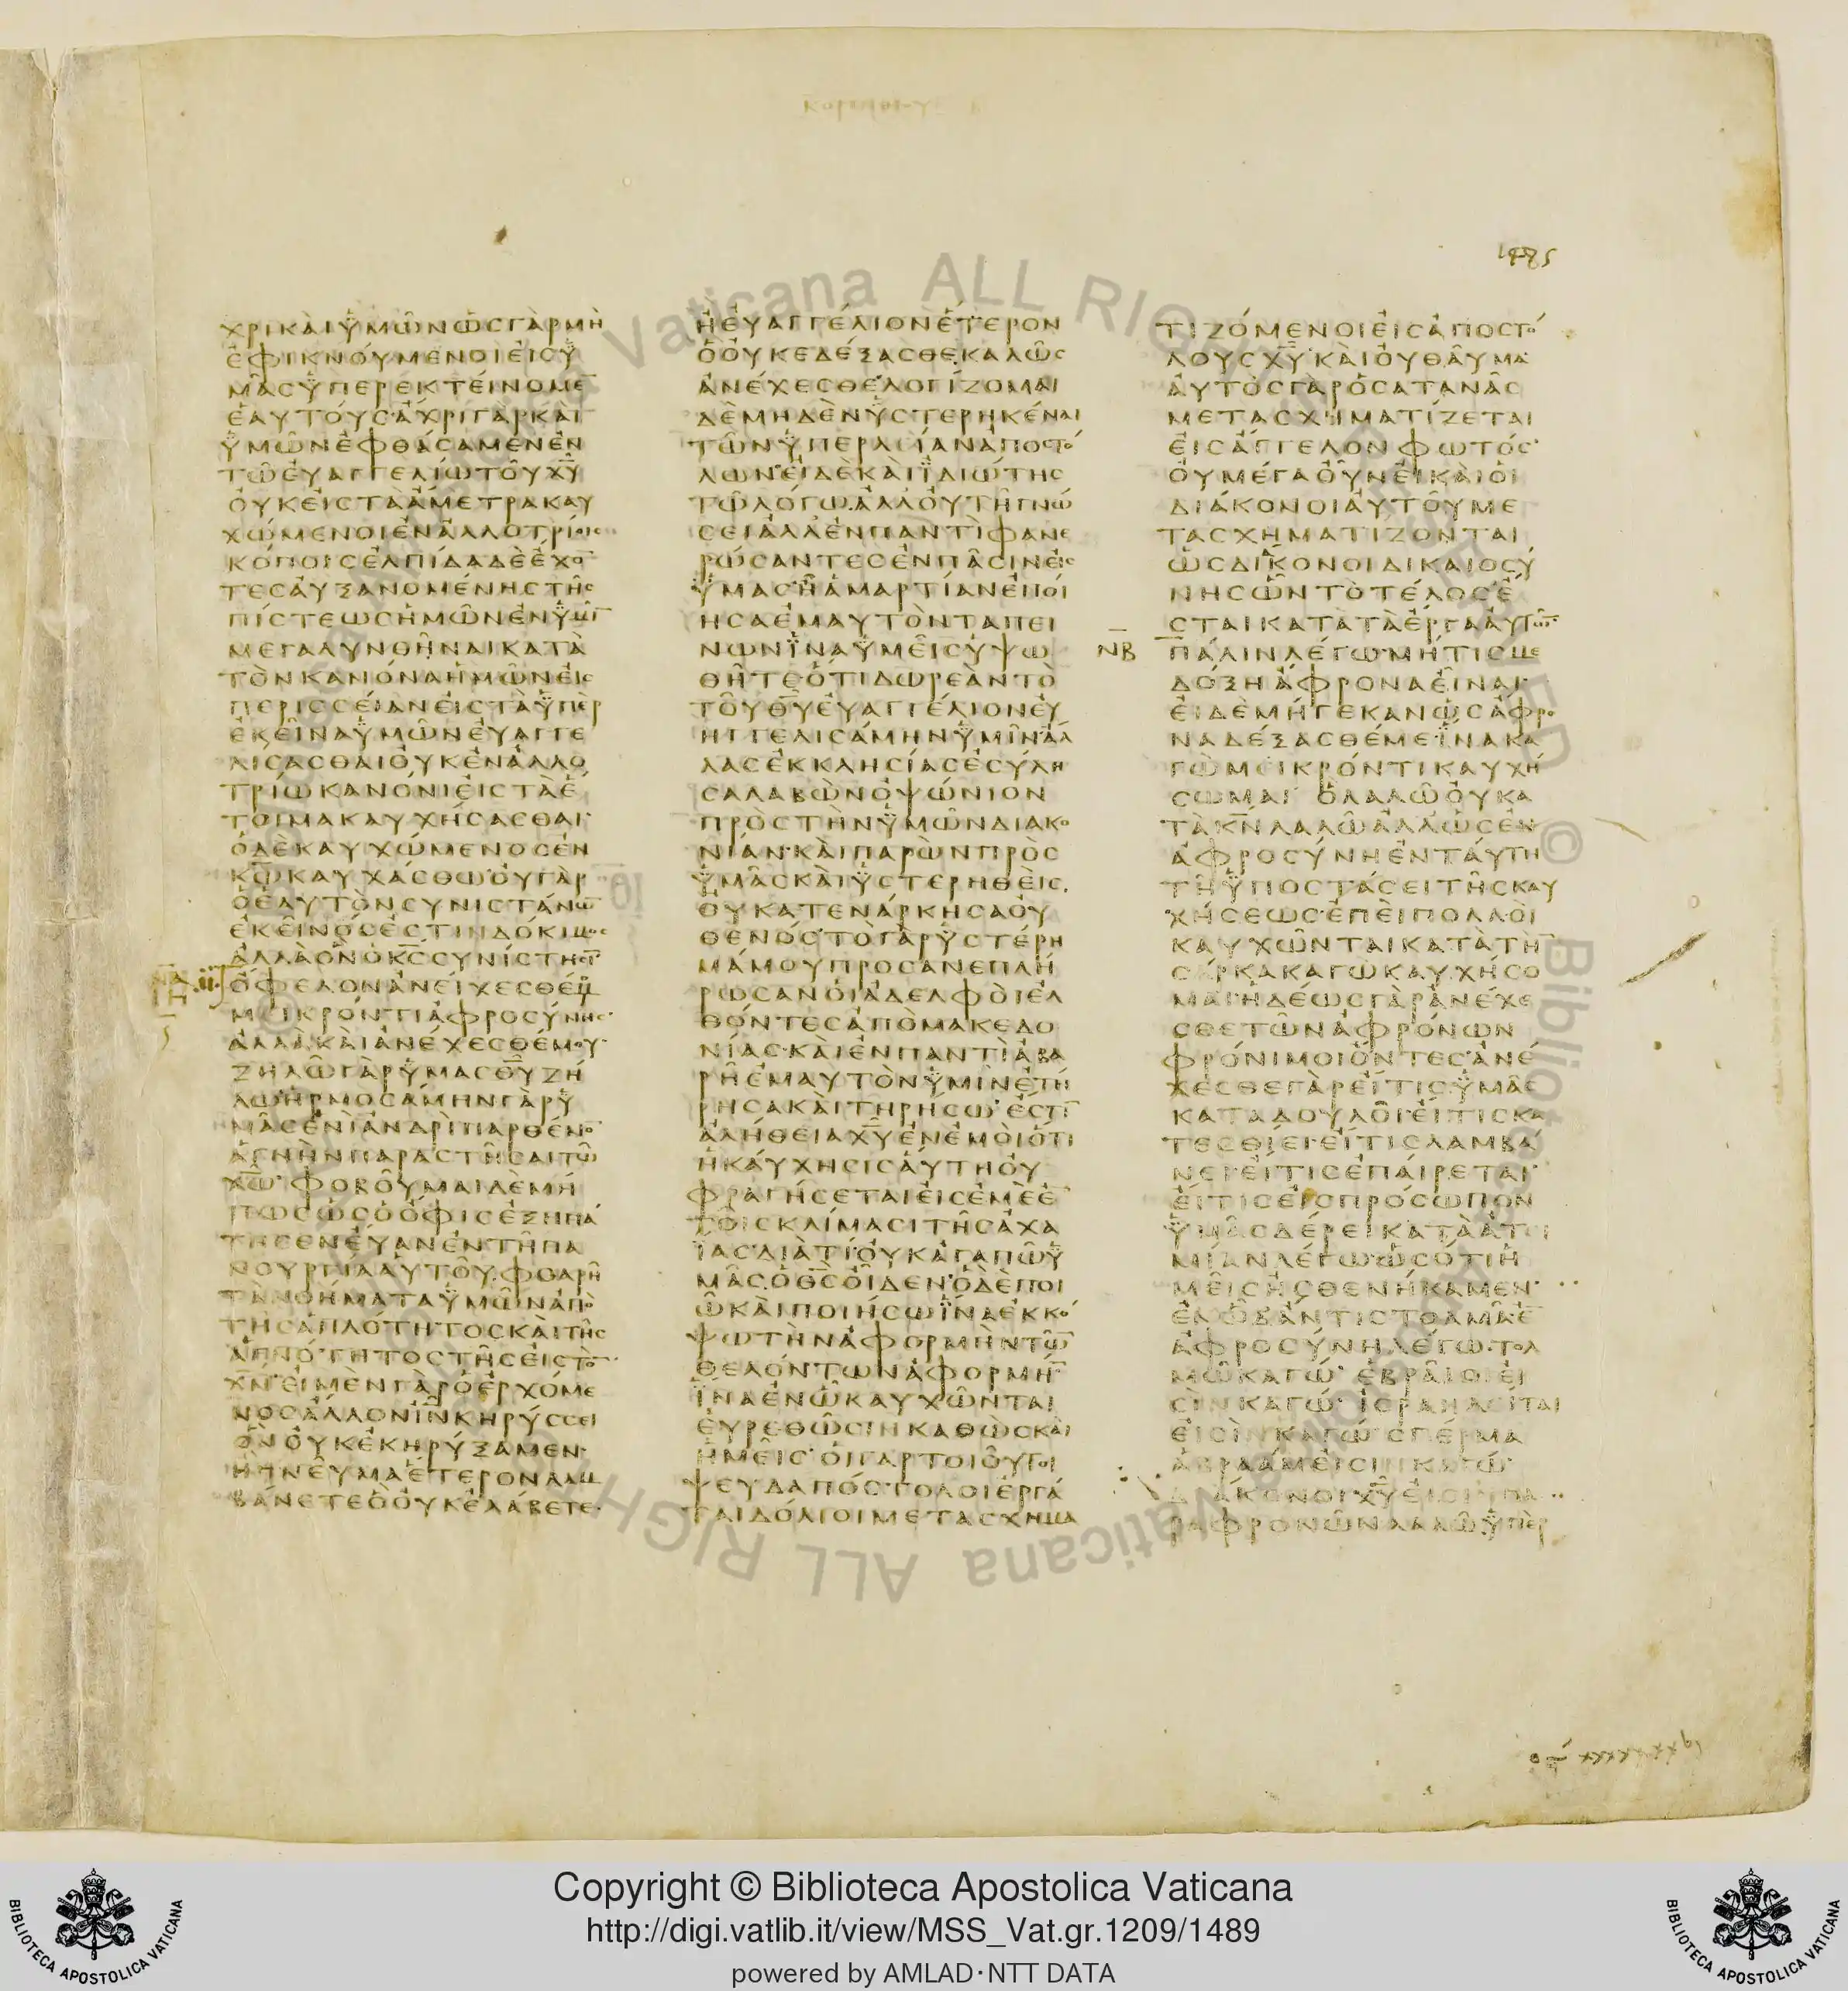 1485
ΧΡΙΚΑΙΫΜΩΝΩΣΓΑΡΜΗ
ΕΦΙΚΝΟΥΜΕΝΟΙΕΙΣΫ
ΜΑΣΫΠΕΡΕΚΤΕΙΝΟΜΕ̅
ΕΑΥΤΟΥΣΑΧΡΙΓΑΡΚΑΙ
ΫΜΩΝΕΦΘΑΣΑΜΕΝΕΝ
ΤΩΕΥΑΓΓΕΛΙΩΤΟΥΧ̅Υ̅
ΟΥΚΕΙΣΤΑΑΜΕΤΡΑΚΑΥ
ΧΩΜΕΝΟΙΕΝΑΛΛΟΤΡΙΟΙΣ
ΚΟΠΟΙΣΕΛΠΙΔΑΔΕΕΧΟ̅
ΤΕΣΑΥΞΑΝΟΜΕΝΗΣΤΗΣ
ΠΙΣΤΕΩΣΗΜΩΝΕΝΫΜΙ̅
ΜΕΓΑΛΥΝΘΗΝΑΙΚΑΤΑ
ΤΟΝΚΑΝΟΝΑΗΜΩΝΕΙΣ
ΠΕΡΙΣΣΕΙΑΝΕΙΣΤΑΫΠΕΡ
ΕΚΕΙΝΑΫΜΩΝΕΥΑΓΓΕ
ΛΙΣΑΣΘΑΙΟΥΚΕΝΑΛΛΟ
ΤΡΙΩΚΑΝΟΝΙΕΙΣΤΑΕ
ΤΟΙΜΑΚΑΥΧΗΣΑΣΘΑΙ·
ΟΔΕΚΑΥΧΩΜΕΝΟΣΕΝ
Κ̅Ω̅ΚΑΥΧΑΣΘΩ·ΟΥΓΑΡ
ΟΕΑΥΤΟΝΣΥΝΙΣΤΑΝΩ̅
ΕΚΕΙΝΟΣΕΣΤΙΝΔΟΚΙΜΟΣ
ΑΛΛΑΟΝΟΚ̅Σ̅ΣΥΝΙΣΤΗΣΙ̅
ΝΑ ΟΦΕΛΟΝΑΝΕΙΧΕΣΘΕΜΟΥ
ΜΕΙΚΡΟΝΤΙΑΦΡΟΣΥΝΗΣ·
ΑΛΛΑΚΑΙΑΝΕΧΕΣΘΕΜΟΥ·
ΖΗΛΩΓΑΡΫΜΑΣΘ̅Υ̅ΖΗ
ΛΩΗΡΜΟΣΑΜΗΝΓΑΡΫ
ΜΑΣΕΝΙΑΝΔΡΙΠΑΡΘΕΝΟ̅
ΑΓΝΗΝΠΑΡΑΣΤΗΣΑΙΤΩ
Χ̅Ω̅·ΦΟΒΟΥΜΑΙΔΕΜΗ
ΠΩΣΩΣΟΟΦΙΣΕΞΗΠΑ
ΤΗΣΕΝΕΥΑΝΕΝΤΗΠΑ
ΝΟΥΡΓΙΑΑΥΤΟΥ·ΦΘΑΡΗ
ΤΑΝΟΗΜΑΤΑΫΜΩΝΑΠΟ
ΤΗΣΑΠΛΟΤΗΤΟΣΚΑΙΤΗΣ
ΑΓΝΟΤΗΤΟΣΤΗΣΕΙΣΤΟ̅
Χ̅Ν̅·ΕΙΜΕΝΓΑΡΟΕΡΧΟΜΕ
ΝΟΣΑΛΛΟΝΙ̅Ν̅ΚΗΡΥΣΣΕΙ
ΟΝΟΥΚΕΚΗΡΥΞΑΜΕΝ·
ΗΠΝΕΥΜΑΕΤΕΡΟΝΛΑΜ
ΒΑΝΕΤΕΟΟΥΚΕΛΑΒΕΤΕ·
ΗΕΥΑΓΓΕΛΙΟΝΕΤΕΡΟΝ
ΟΟΥΚΕΔΕΞΑΣΘΕ·ΚΑΛΩΣ
ΑΝΕΧΕΣΘΕ·ΛΟΓΙΖΟΜΑΙ
ΔΕΜΗΔΕΝΫΣΤΕΡΗΚΕΝΑΙ
ΤΩΝΫΠΕΡΛΕΙΑΝΑΠΟΣΤΟ
ΛΩΝ·ΕΙΔΕΚΑΙΪΔΙΩΤΗΣ
ΤΩΛΟΓΩ·ΑΛΛΟΥΤΗΓΝΩ
ΣΕΙΑΛΛΕΝΠΑΝΤΙΦΑΝΕ
ΡΩΣΑΝΤΕΣΕΝΠΑΣΙΝΕΙΣ
ΫΜΑΣ·ΗΑΜΑΡΤΙΑΝΕΠΟΙ
ΗΣΑΕΜΑΥΤΟΝΤΑΠΕΙ
ΝΩΝΪΝΑΫΜΕΙΣΥΨΩ
ΘΗΤΕΟΤΙΔΩΡΕΑΝΤΟ
ΤΟΥΘ̅Υ̅ΕΥΑΓΓΕΛΙΟΝΕΥ
ΗΓΓΕΛΙΣΑΜΗΝΫΜΙΝ·ΑΛ
ΛΑΣΕΚΚΛΗΣΙΑΣΕΣΥΛΗ
ΣΑΛΑΒΩΝΟΨΩΝΙΟΝ
ΠΡΟΣΤΗΝΫΜΩΝΔΙΑΚΟ
ΝΙΑΝ·ΚΑΙΠΑΡΩΝΠΡΟΣ
ΫΜΑΣΚΑΙΫΣΤΕΡΗΘΕΙΣ
ΟΥΚΑΤΕΝΑΡΚΗΣΑΟΥ
ΘΕΝΟΣ·ΤΟΓΑΡΫΣΤΕΡΗ
ΜΑΜΟΥΠΡΟΣΑΝΕΠΛΗ
ΡΩΣΑΝΟΙΑΔΕΛΦΟΙΕΛ
ΘΟΝΤΕΣΑΠΟΜΑΚΕΔΟ
ΝΙΑΣ·ΚΑΙΕΝΠΑΝΤΙΑΒΑ
ΡΗΕΜΑΥΤΟΝΫΜΙΝΕΤΗ
ΡΗΣΑΚΑΙΤΗΡΗΣΩ·ΕΣΤΙ̅
ΑΛΗΘΕΙΑΧ̅Υ̅ΕΝΕΜΟΙΟΤΙ
ΗΚΑΥΧΗΣΙΣΑΥΤΗΟΥ
ΦΡΑΓΗΣΕΤΑΙΕΙΣΕΜΕΕ̅
ΤΟΙΣΚΛΙΜΑΣΙΤΗΣΑΧΑ
ΪΑΣ·ΔΙΑΤΙΟΥΚΑΓΑΠΩΫ
ΜΑΣ·ΟΘ̅Σ̅ΟΙΔΕΝ·ΟΔΕΠΟΙ
ΩΚΑΙΠΟΙΗΣΩΪΝΑΕΚΚΟ
ΨΩΤΗΝΑΦΟΡΜΗΝΤΩ̅
ΘΕΛΟΝΤΩΝΑΦΟΡΜΗ̅
ΪΝΑΕΝΩΚΑΥΧΩΝΤΑΙ
ΕΥΡΕΘΩΣΙΝΚΑΘΩΣΚΑΙ
ΗΜΕΙΣ·ΟΙΓΑΡΤΟΙΟΥΤΟΙ
ΨΕΥΔΑΠΟΣΤΟΛΟΙΕΡΓΑ
ΤΑΙΔΟΛΙΟΙΜΕΤΑΣΧΗΜΑ
ΤΙΖΟΜΕΝΟΙΕΙΣΑΠΟΣΤΟ
ΛΟΥΣΧ̅Υ̅·ΚΑΙΟΥΘΑΥΜΑ·
ΑΥΤΟΣΓΑΡΟΣΑΤΑΝΑΣ
ΜΕΤΑΣΧΗΜΑΤΙΖΕΤΑΙ
ΕΙΣΑΓΓΕΛΟΝΦΩΤΟΣ·
ΟΥΜΕΓΑΟΥΝΕΙΚΑΙΟΙ
ΔΙΑΚΟΝΟΙΑΥΤΟΥΜΕ
ΤΑΣΧΗΜΑΤΙΖΟΝΤΑΙ
ΩΣΔΙΑΚΟΝΟΙΔΙΚΑΙΟΣΥ
ΝΗΣΩΝΤΟΤΕΛΟΣΕ
ΣΤΑΙΚΑΤΑΤΑΕΡΓΑΑΥΤΩ̅·
ΝΒ ΠΑΛΙΝΛΕΓΩ·ΜΗΤΙΣΜΕ
ΔΟΞΗΑΦΡΟΝΑΕΙΝΑΙ·
ΕΙΔΕΜΗΓΕΚΑΝΩΣΑΦΡΟ
ΝΑΔΕΞΑΣΘΕΜΕ·ΪΝΑΚΑ
ΓΩΜΕΙΚΡΟΝΤΙΚΑΥΧΗ
ΣΩΜΑΙ ΟΛΑΛΩΟΥΚΑ
ΤΑΚ̅Ν̅ΛΑΛΩΑΛΛΩΣΕΝ
ΑΦΡΟΣΥΝΗΕΝΤΑΥΤΗ
ΤΗΫΠΟΣΤΑΣΕΙΤΗΣΚΑΥ
ΧΗΣΕΩΣ·ΕΠΕΙΠΟΛΛΟΙ
ΚΑΥΧΩΝΤΑΙΚΑΤΑΤΗ̅
ΣΑΡΚΑΚΑΓΩΚΑΥΧΗΣΟ
ΜΑΙ·ΗΔΕΩΣΓΑΡΑΝΕΧΕ
ΣΘΕΤΩΝΑΦΡΟΝΩΝ
ΦΡΟΝΙΜΟΙΟΝΤΕΣ·ΑΝΕ
ΧΕΣΘΕΓΑΡΕΙΤΙΣΫΜΑΣ
ΚΑΤΑΔΟΥΛΟΙ·ΕΙΤΙΣΚΑ
ΤΕΣΘΙΕΙ·ΕΙΤΙΣΛΑΜΒΑ
ΝΕΙ·ΕΙΤΙΣΕΠΑΙΡΕΤΑΙ·
ΕΙΤΙΣΕΙΣΠΡΟΣΩΠΟΝ
ΫΜΑΣΔΕΡΕΙΚΑΤΑΑΤΙ
ΜΙΑΝΛΕΓΩ·ΩΣΟΤΙΗ
ΜΕΙΣΗΣΘΕΝΗΚΑΜΕΝ·
ΕΝΩΔΑΝΤΙΣΤΟΛΜΑΕ̅
ΑΦΡΟΣΥΝΗΛΕΓΩ·ΤΟΛ
ΜΩΚΑΓΩ· ΕΒΡΑΙΟΙΕΙ
ΣΙΝΚΑΓΩ· ΙΣΡΑΗΛΕΙΤΑΙ
ΕΙΣΙΝΚΑΓΩ·ΣΠΕΡΜΑ
ΑΒΡΑΑΜΕΙΣΙΝΚΑΓΩ·
ΔΙΑΚΟΝΟΙΧ̅Υ̅ΕΙΣΙΝΠΑ
ΡΑΦΡΟΝΩΝΛΑΛΩ·ΫΠΕΡ
Copyright © Biblioteca Apostolica Vaticana
http://digi.vatlib.it/view/MSS_Vat.gr.1209/1489
powered by AMLAD·NTT DATA
BIBLIOTECA APOSTOLICA VATICANA
BIBLIOTECA APOSTOLICA VATICANA